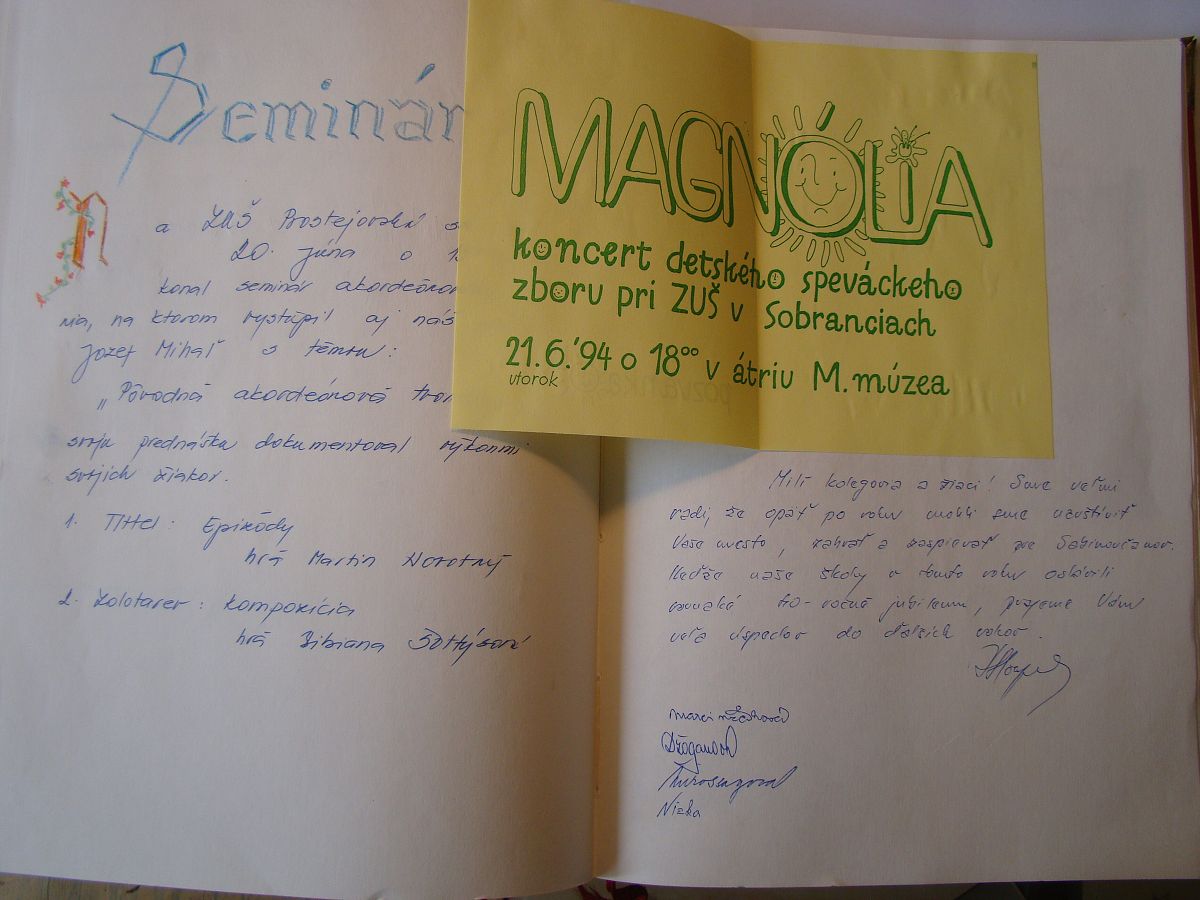 Seminár
Na ZUŠ Prostejovská s
20. júna o 1
konal seminár akordeóno
nia, na ktorom vystúpil aj náš
Jozef Mihaľ s témou:
„Pôvodná akordeónová tvor
svoju prednášku dokumentoval výkonmi
svojich žiakov.
1. Tittel: Epizódy
hrá Martin Novotný
2. Zolotarev: Kompozícia
hrá Bibiana Šoltýsová
MAGNOLIA
koncert detského speváckeho
zboru pri ZUŠ v Sobranciach
21.6.'94 o 18⁰⁰ v átriu M. múzea
utorok
Milí kolegovia a žiaci! Sme veľmi
radi, že opäť po roku mohli sme navštíviť
Vaše mesto, zahrať a zaspievať pre Sabinovčanov.
Keďže naše školy v tomto roku oslávili
40-ročné jubileum, prajeme Vám
veľa úspechov do ďalších rokov.
Džoganová
Nizka